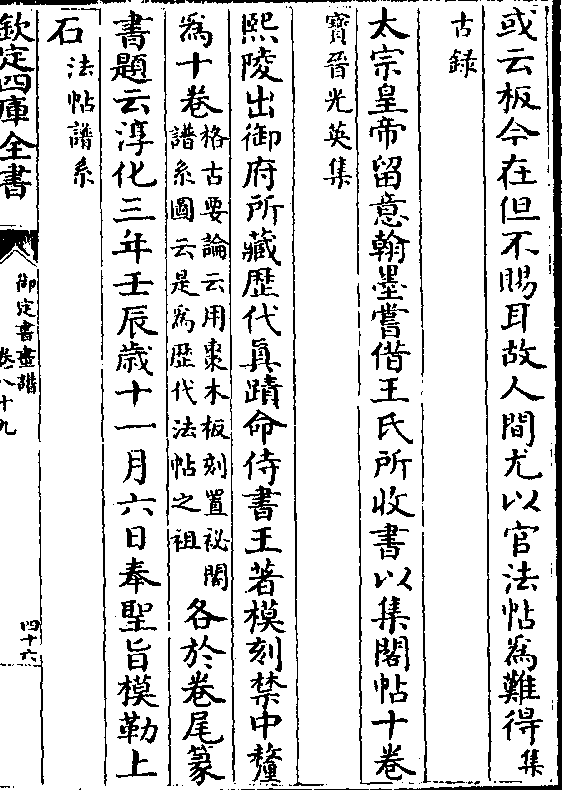 或云板今在但不賜耳故人間尤以官法帖為難得集
古録
太宗皇帝留意翰墨嘗借王氏所收書以集閣帖十卷
寶晉光英集
熙陵出御府所藏歴代真蹟命侍書王著模刻禁中釐
為十卷格古要論云用棗木板刻置祕閣譜系圖云是為歴代法帖之祖各於卷尾篆
書題云淳化三年壬辰歳十一月六日奉聖旨模勒上
石法帖譜系
欽定四庫全書
御定書畫譜
卷八十九
四十六